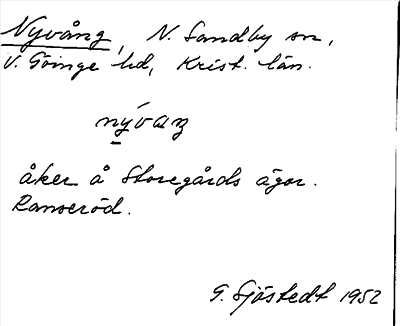 Nyvång, N. Sandby sn,
V. Göinge hd, Krist. län.
nývaŋ
åker å Storegårds ägor.
Ranseröd.
G. Sjöstedt 1952